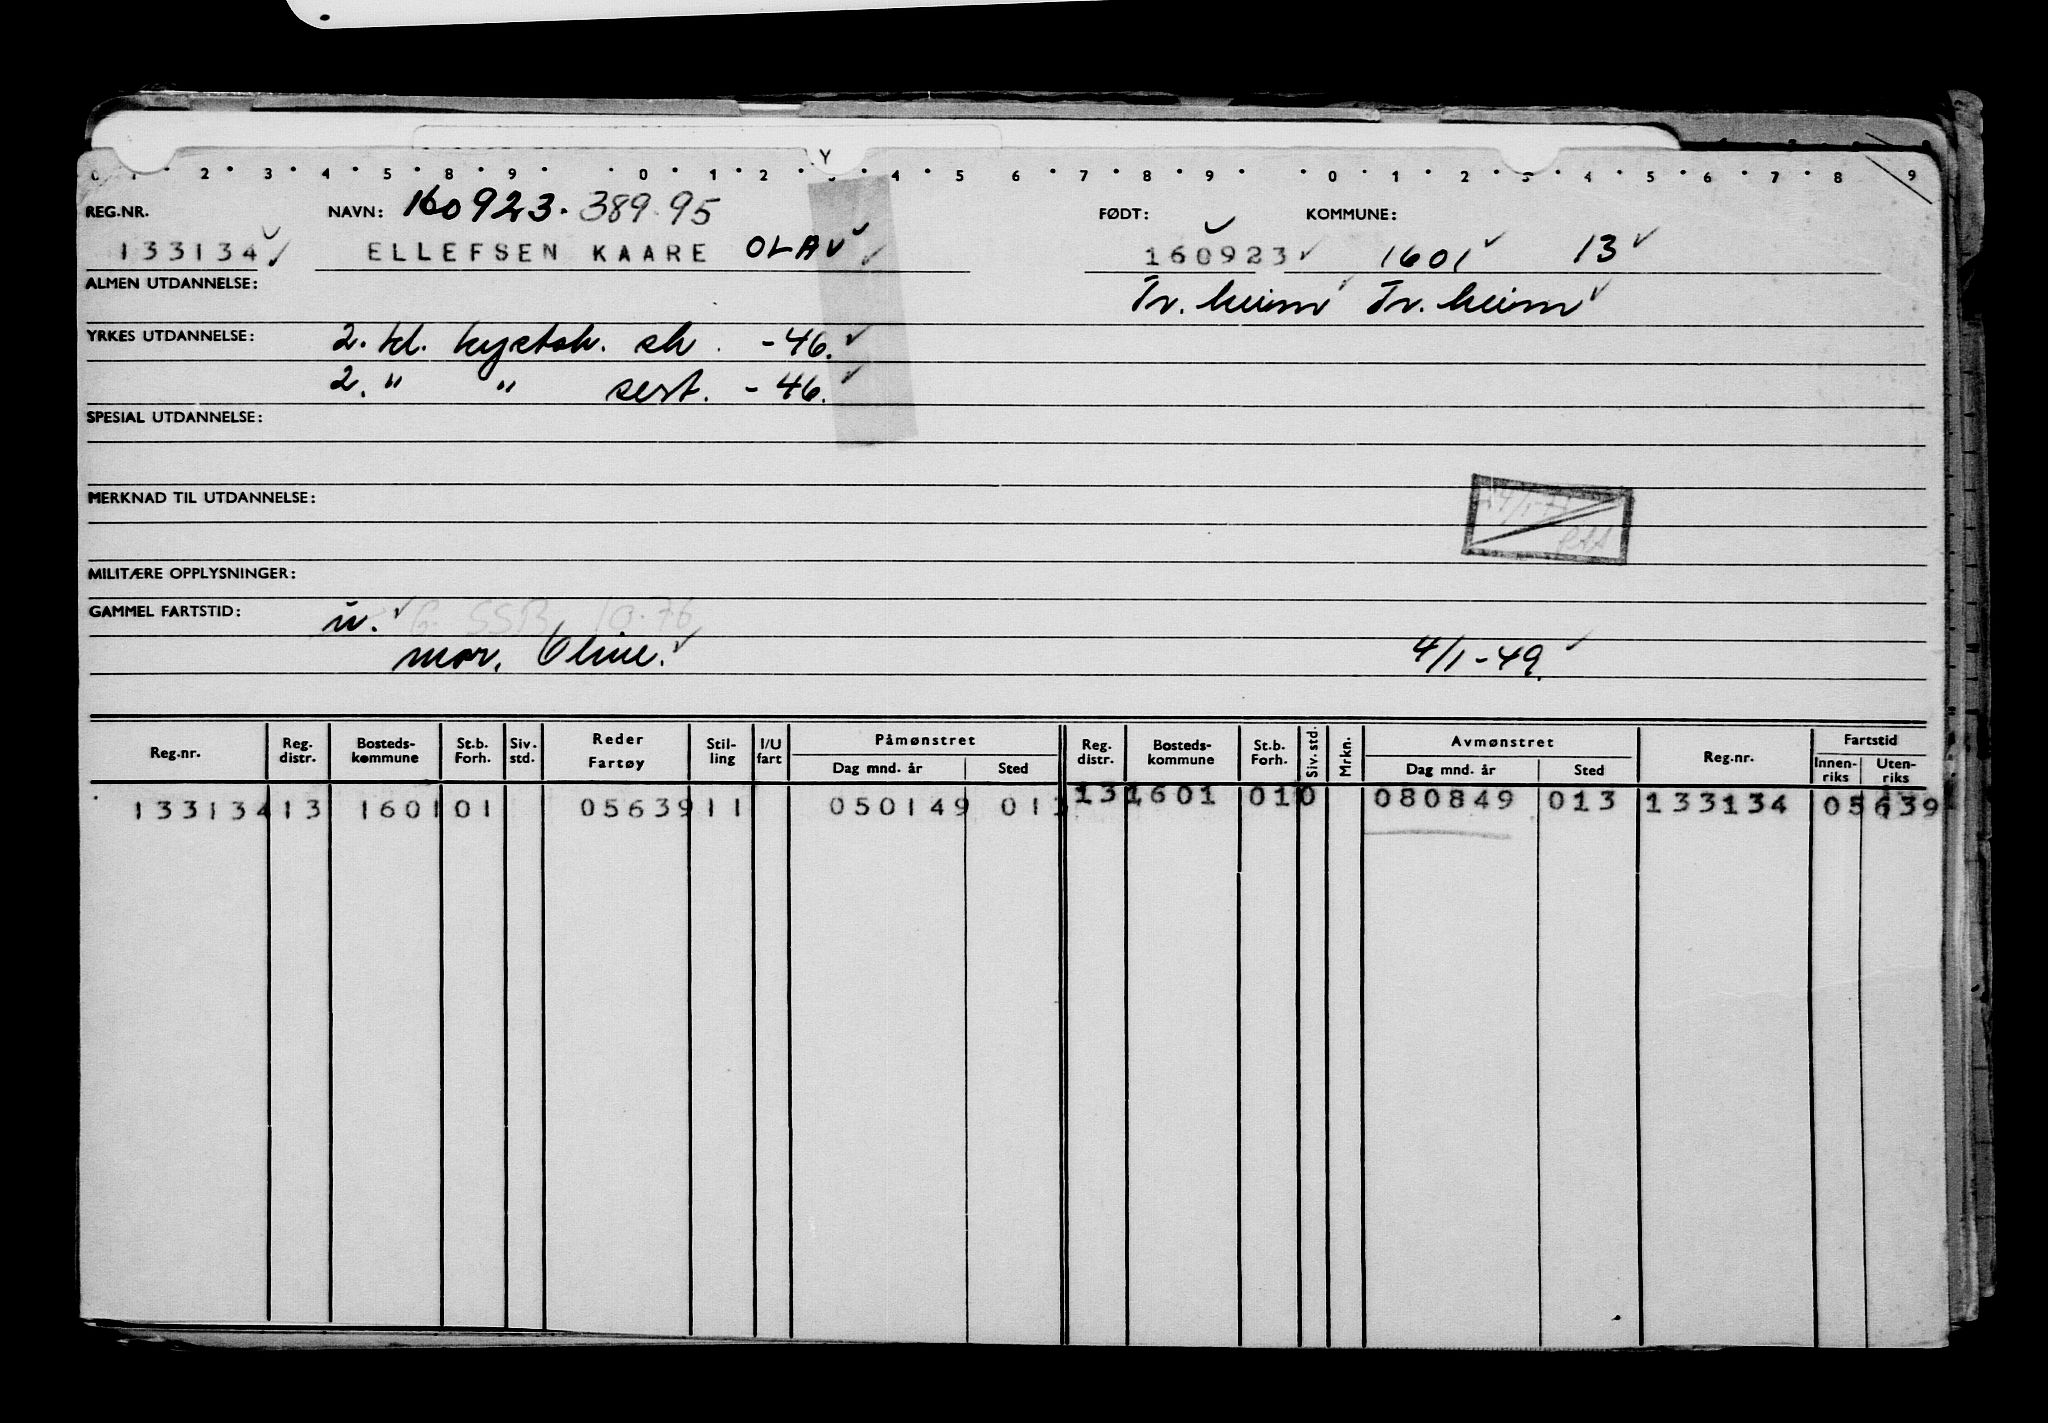 Y
0 1 2 3 4 5 8 9 0 1 2 3 4 5 6 7 8 9 0 1 2 3 4 5 6 7 8 9
REG.NR. NAVN: 160923. 389.95 FØDT: KOMMUNE:
133134 ELLEFSEN KAARE OLAV 160923 1601 13
ALMEN UTDANNELSE: Tr.heim Tr.heim
YRKES UTDANNELSE: 2. kl. kystsk. sk. -46.
2. " " sert. -46.
SPESIAL UTDANNELSE:
MERKNAD TIL UTDANNELSE:
MILITÆRE OPPLYSNINGER:
GAMMEL FARTSTID: u. G. SSB 10.76
mor. Oline. 4/1-49.
Reg.nr. Reg. distr. Bosteds- kommune St.b. Forh. Siv. std. Reder Fartøy Stil- ling I/U fart Påmønstret Dag mnd. år Sted Reg. distr. Bosteds- kommune St.b. Forh. Siv. std. Mrkn. Avmønstret Dag mnd. år Sted Reg.nr. Fartstid Innen- riks Uten- riks
133134 13 1601 01 05639 11 050149 013 13 1601 010 080849 013 133134 05639